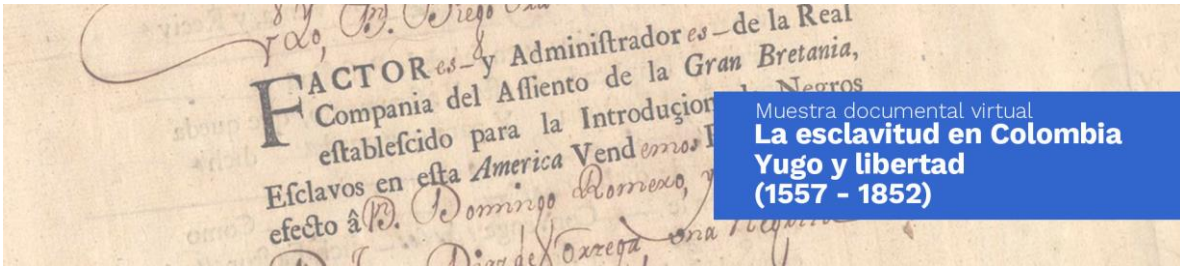 y Dⁿ. Diego
FACTORes y Adminiſtradores de la Real
Compania del Aſſiento de la Gran Bretania,
eſtableſcido para la Introduçion Negros
Eſclavos en eſta America Vendemos
efecto â Dⁿ. Domingo Romero, y
Diaz de Ortega una
Muestra documental virtual
La esclavitud en Colombia
Yugo y libertad
(1557 - 1852)